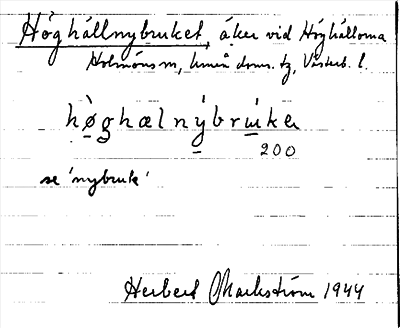 Höghällnybruket, åker vid Höghällorna
Holmöns sn, Umeå doms. tg, Västerb. l.
hø̀ghælnýbrúka
200
se 'nybruk'
Herbert Markström 1944